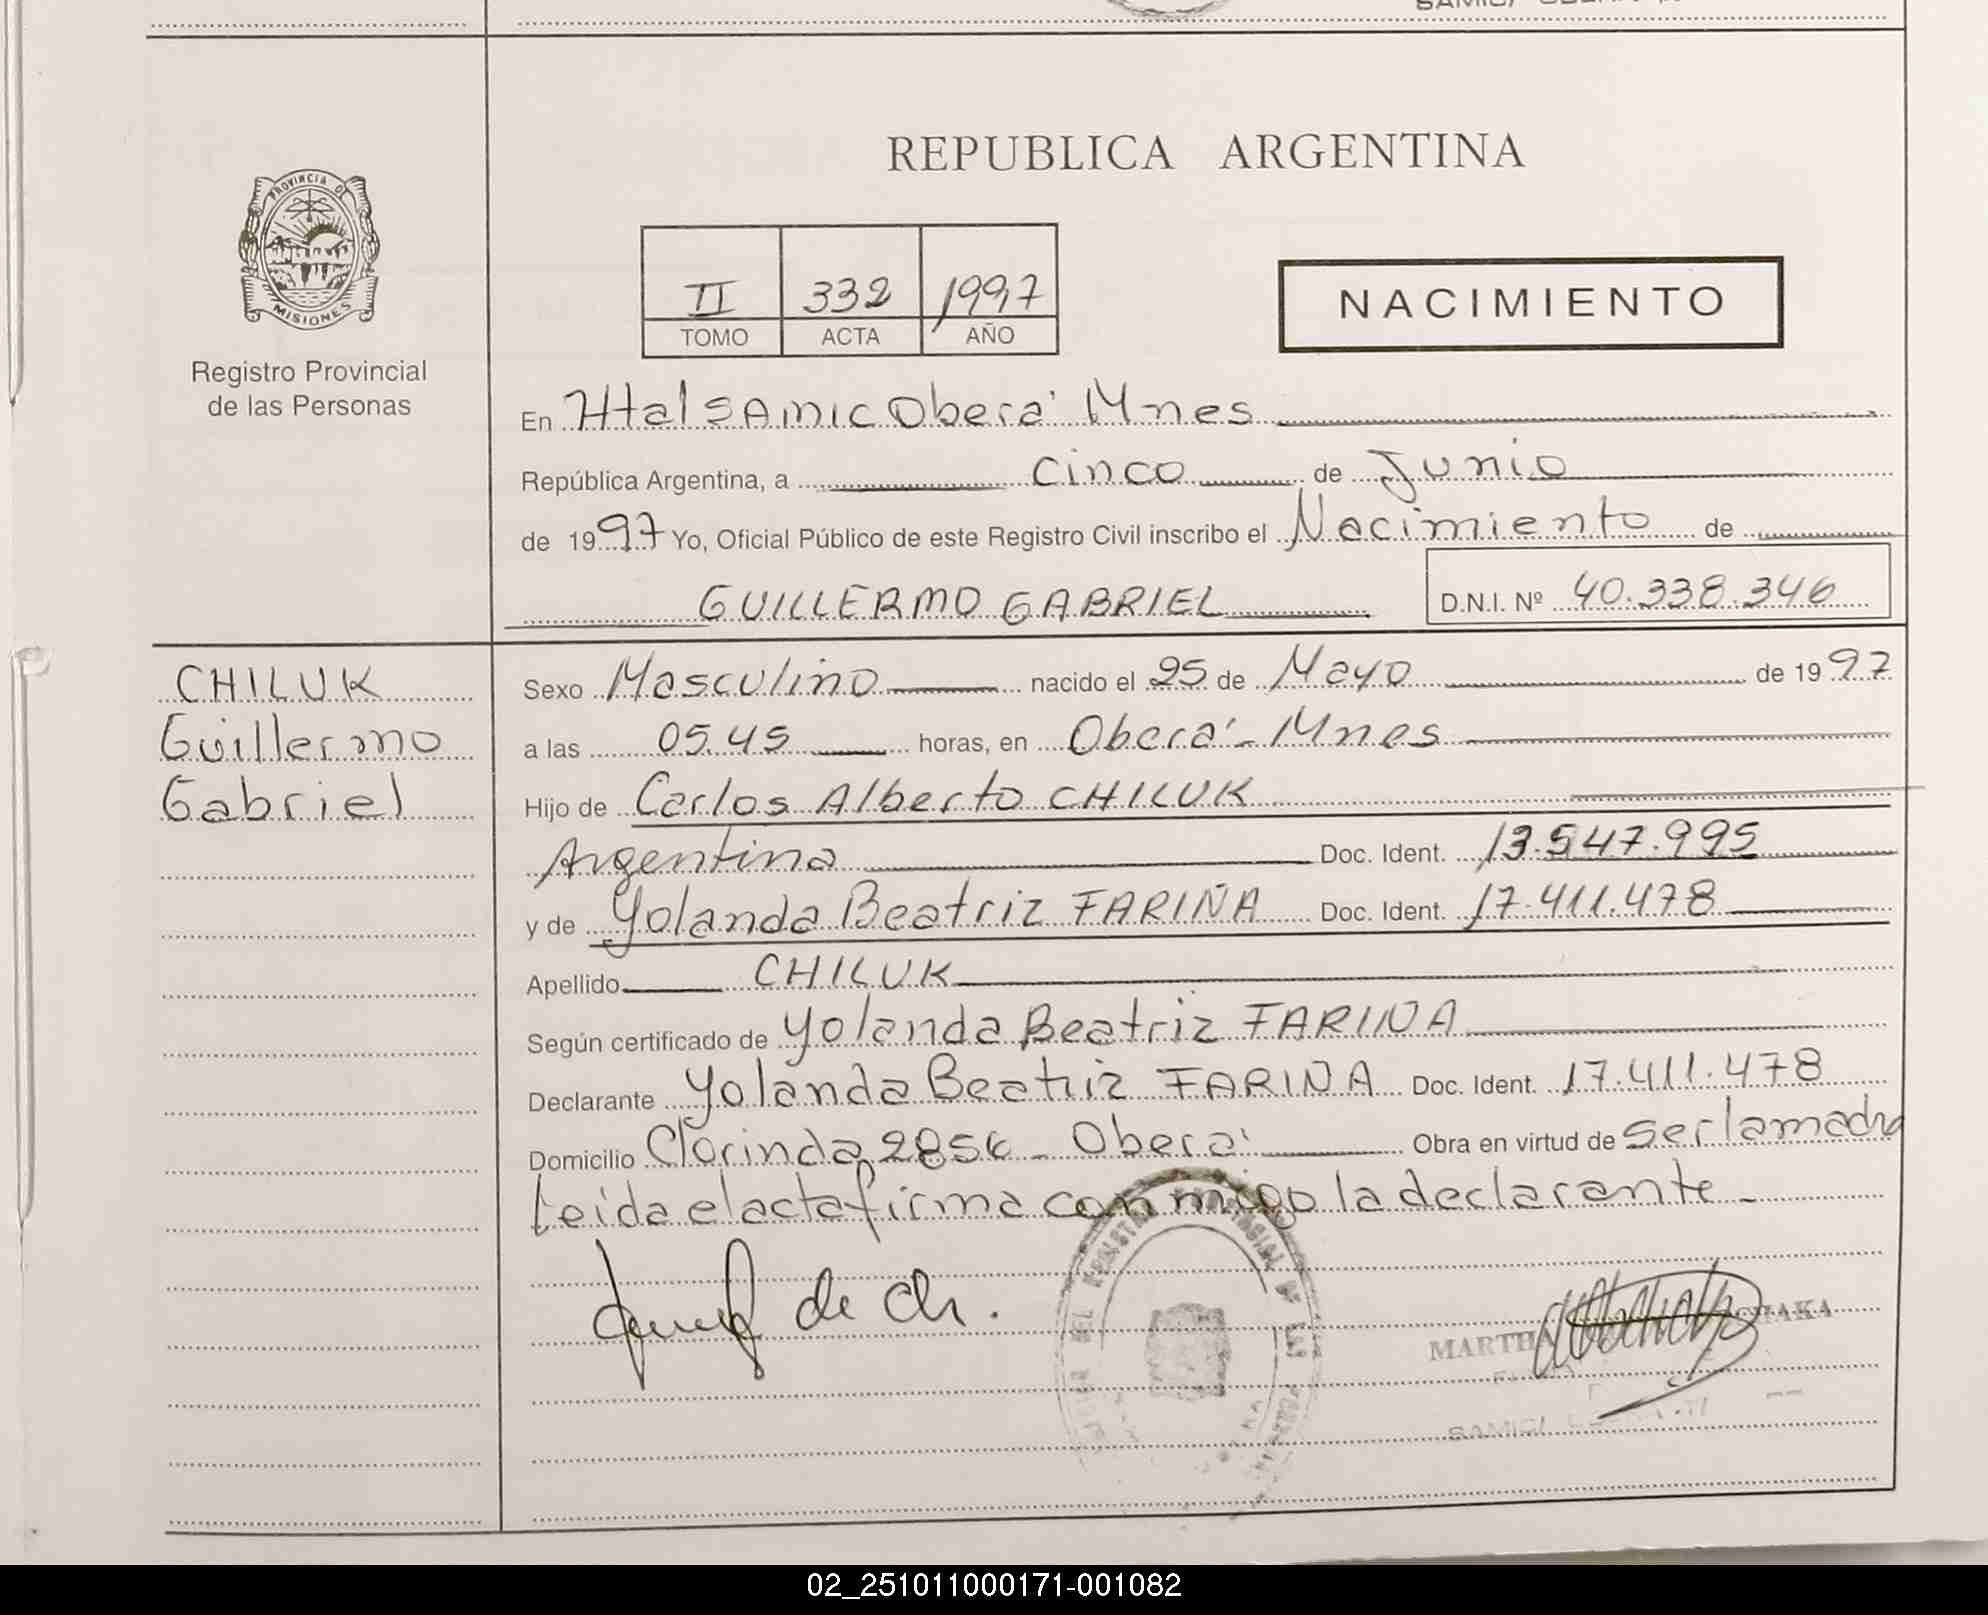 PROVINCIA DE
MISIONES
Registro Provincial
de las Personas
REPUBLICA ARGENTINA
II 332 1997
TOMO ACTA AÑO
NACIMIENTO
En Htal SAMIC Oberá Mnes
República Argentina, a cinco de Junio
de 1997 Yo, Oficial Público de este Registro Civil inscribo el Nacimiento de
GUILLERMO GABRIEL D.N.I. Nº 40.338.346
CHILUK
Guillermo
Gabriel
Sexo Masculino nacido el 25 de Mayo de 1997
a las 05.45 horas, en Oberá - Mnes
Hijo de Carlos Alberto CHILUK
Argentina Doc. Ident. 13.547.995
y de Yolanda Beatriz FARIÑA Doc. Ident. 17.411.478
Apellido CHILUK
Según certificado de Yolanda Beatriz FARIÑA
Declarante Yolanda Beatriz FARIÑA Doc. Ident. 17.411.478
Domicilio Clorinda 2856 - Oberá Obra en virtud de ser la madre
Leida el acta firma conmigo la declarante -
de Ch.
MARTHA
SAMIC
02_251011000171-001082